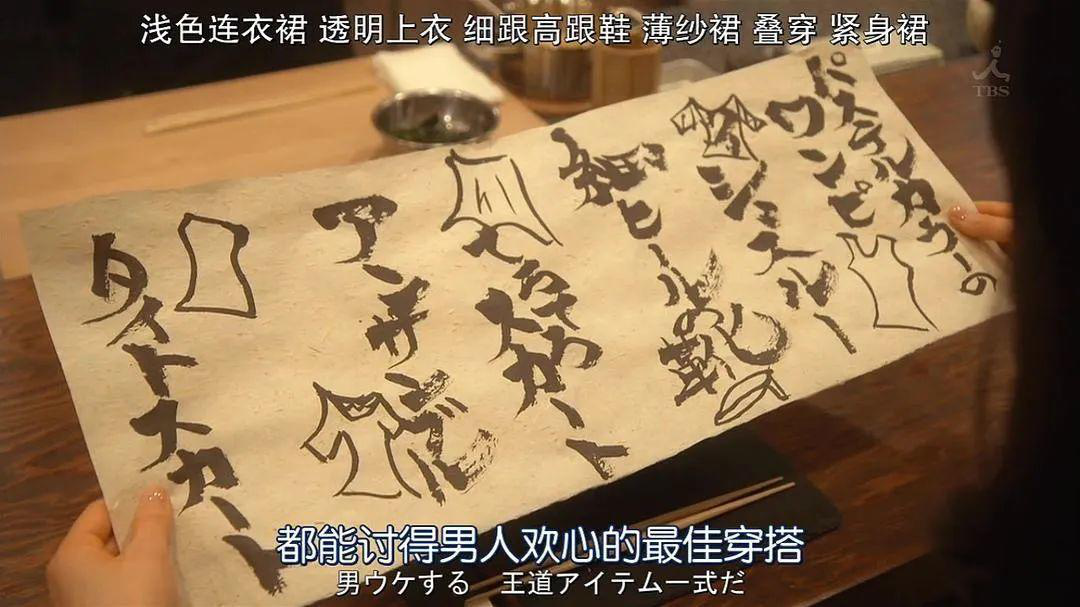 浅色连衣裙 透明上衣 细跟高跟鞋 薄纱裙 叠穿 紧身裙
TBS
パステルカラーの
ワンピ
シースルー
細ヒールの靴
スカート
アンサンブル
タイトスカート
都能讨得男人欢心的最佳穿搭
男ウケする 王道アイテム一式だ